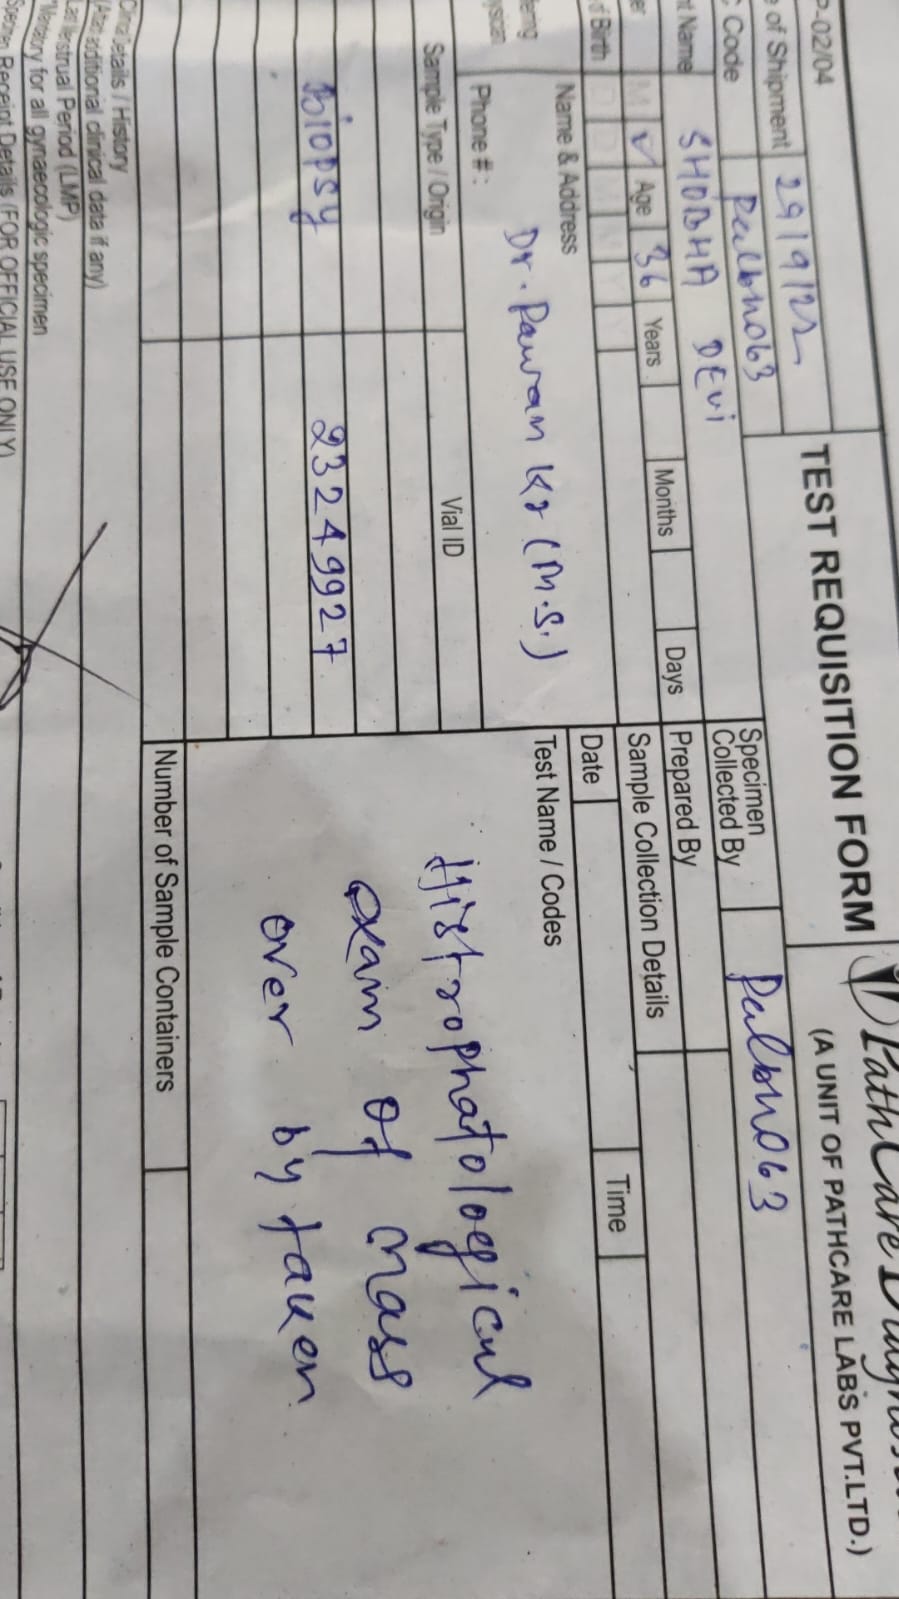 P-02/04
TEST REQUISITION FORM
PathCare
(A UNIT OF PATHCARE LABS PVT.LTD.)
e of Shipment 29/9/22
Code Palbno63
Specimen
Collected By Palbno63
nt Name SHOBHA DEVI
Prepared By
er M ✓ Age 36 Years Months Days
Sample Collection Details
of Birth D D M M Y Y
Date Time
Name & Address
Dr. Pawan Kr (M.S.)
ering
ysician
Phone #:
Test Name / Codes
Histrophatological
exam of mass
over by tauen
Sample Type / Origin Vial ID
Biopsy 23249927
Number of Sample Containers
Clinical Details / History
(Attach additional clinical data if any)
Last Menstrual Period (LMP)
*Mandatory for all gynaecologic specimen
Specimen Receipt Details (FOR OFFICIAL USE ONLY)